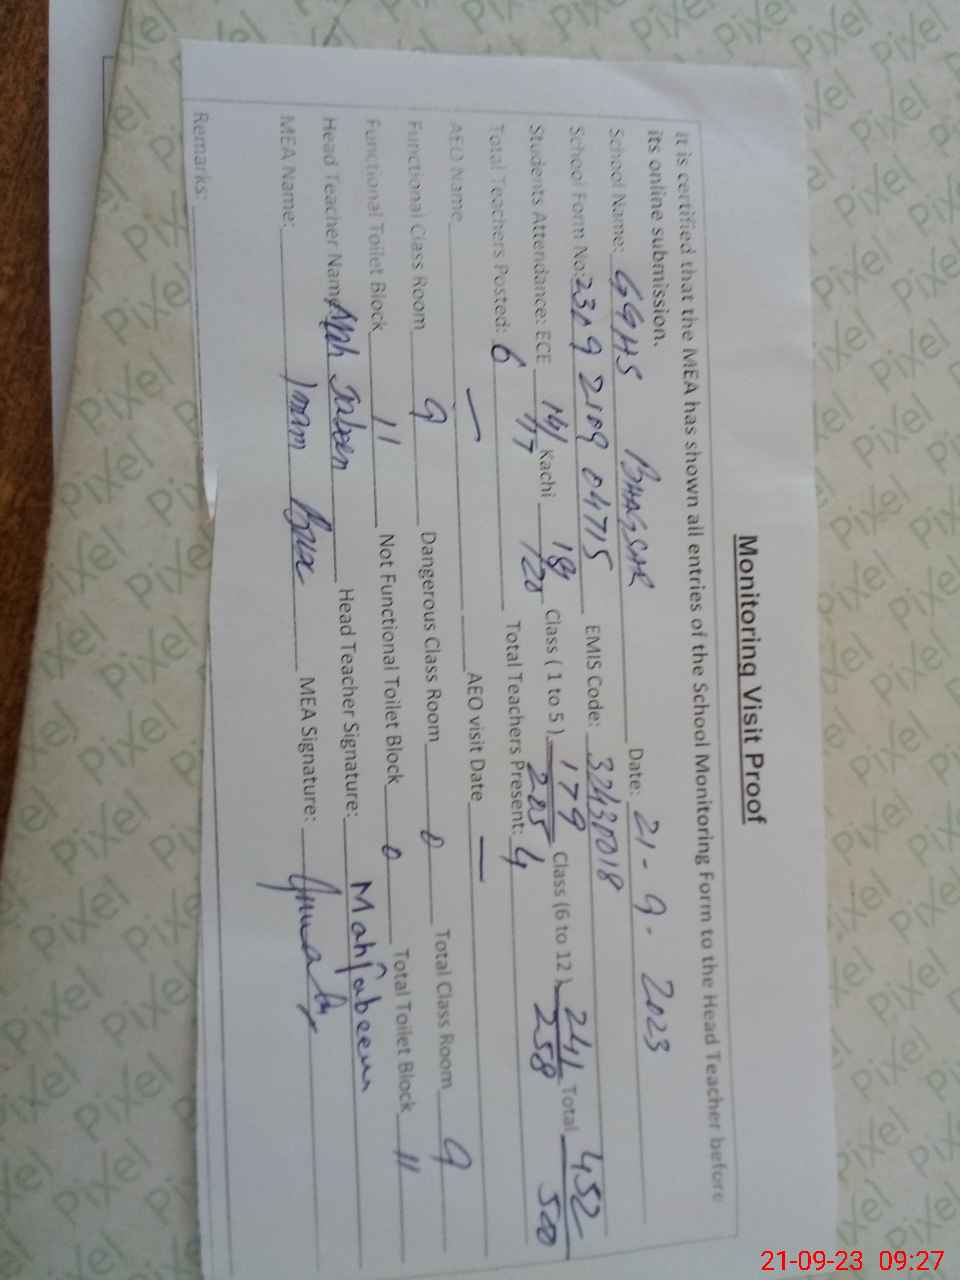 Monitoring Visit Proof
It is certified that the MEA has shown all entries of the School Monitoring Form to the Head Teacher before
its online submission.
School Name: GGHS BHAGSAR Date: 21-9-2023
School Form No: 2309 2109 04715 EMIS Code: 32430018
Students Attendance: ECE 14/17 Kachi 18/20 Class ( 1 to 5 ) 179/205 Class (6 to 12 ) 241/258 Total 452/500
Total Teachers Posted: 6 Total Teachers Present: 4
AEO Name — AEO visit Date —
Functional Class Room 9 Dangerous Class Room 0 Total Class Room 9
Functional Toilet Block 11 Not Functional Toilet Block 0 Total Toilet Block 11
Head Teacher Name Jabeen Head Teacher Signature: Mahjabeen
MEA Name: Imam Bux MEA Signature:
Remarks:
21-09-23 09:27
Pixel